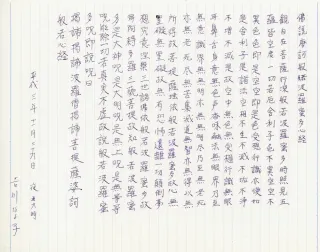 佛説摩訶般若波羅蜜多心経
観自在菩薩行深般若波羅蜜多時照見五
蘊皆空度一切苦厄舎利子色不異空空不
異色色即是空空即是色受想行識亦復如
是舎利子是諸法空相不生不滅不垢不浄
不増不減是故空中無色無受想行識無眼
耳鼻舌身意無色声香味触法無眼界乃至
無意識界無無明亦無無明尽乃至無老死
亦無老死尽無苦集滅道無智亦無得以無
所得故菩提薩埵依般若波羅蜜多故心無
罣礙無罣礙故無有恐怖遠離一切顛倒夢
想究竟涅槃三世諸佛依般若波羅蜜多故
得阿耨多羅三藐三菩提故知般若波羅蜜
多是大神呪是大明呪是無上呪是無等等
呪能除一切苦真実不虚故説般若波羅蜜
多呪即説呪曰
揭諦揭諦波羅僧揭諦菩提薩婆訶
般若心経
平成三年十一月二十六日
吉川